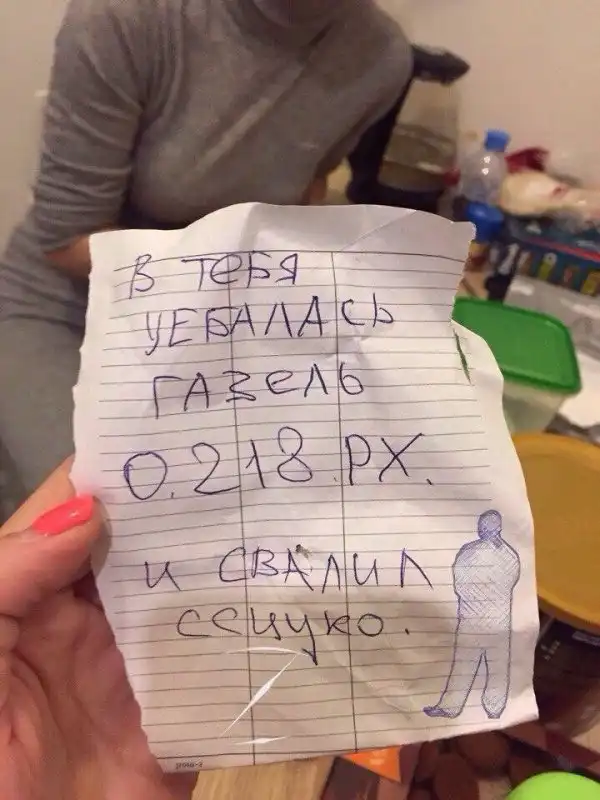 В ТЕБЯ
УЕБАЛАСЬ
ГАЗЕЛЬ
О.218.РХ.
И СВАЛИЛ
ССЦУКО.